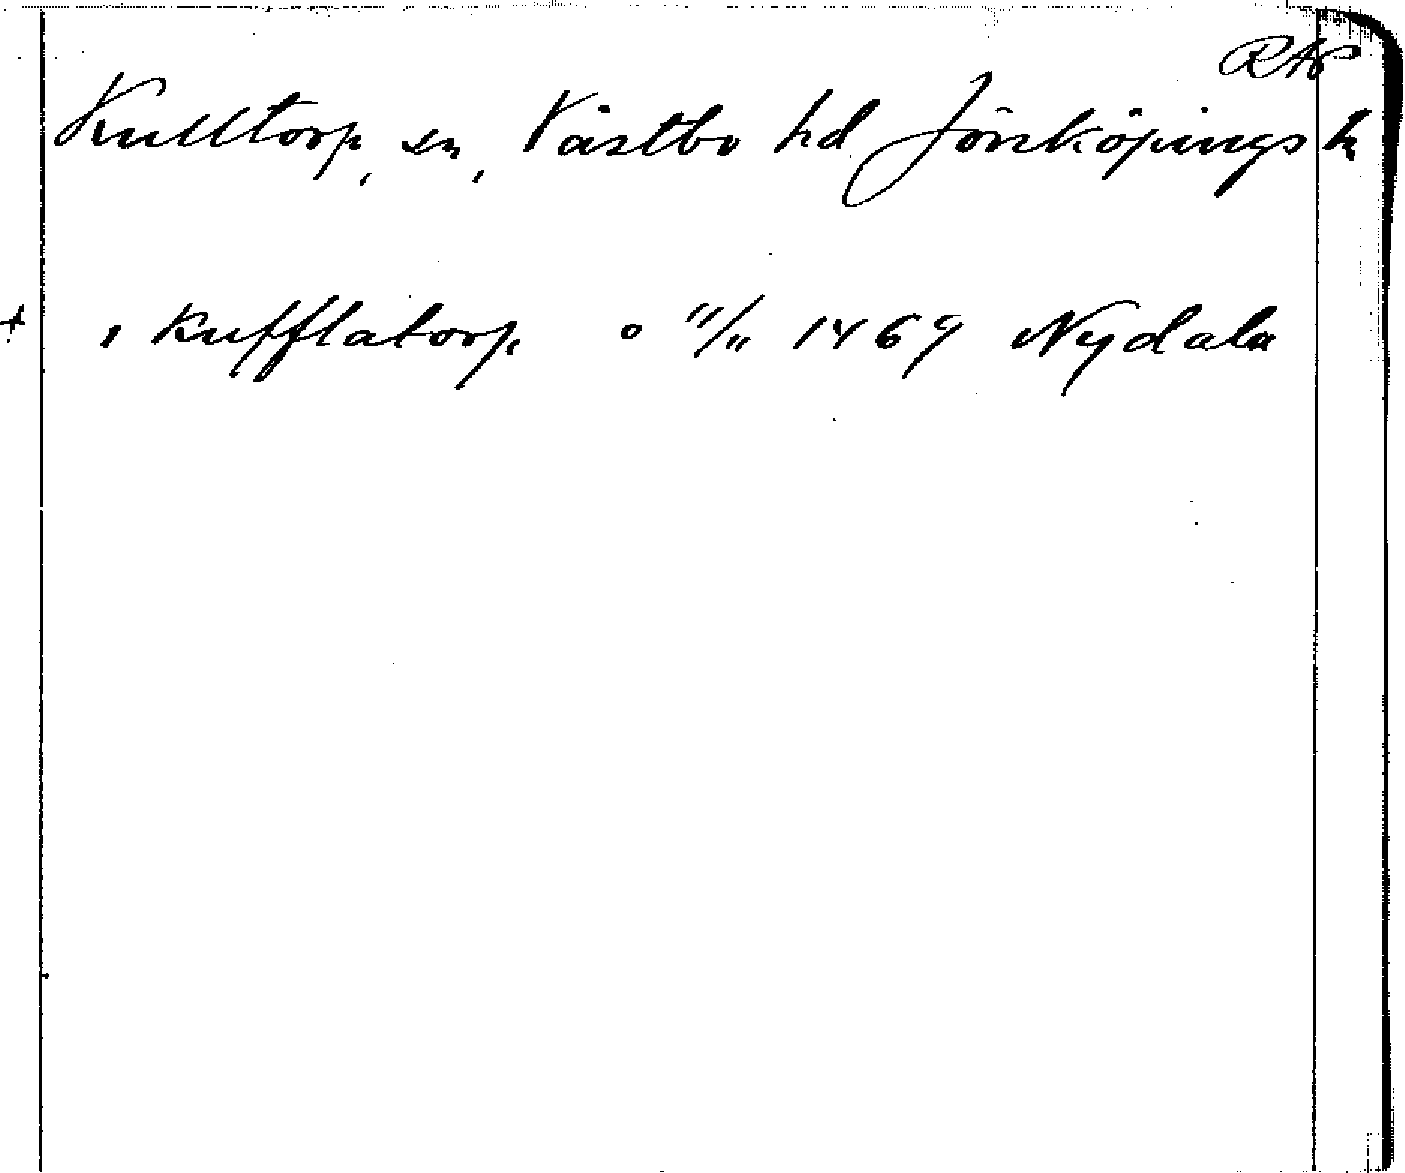 RAP
Kulltorp, sn, Västbo hd Jönköpings l
+ , kufflatorp, o 11/11 1469 Nydala